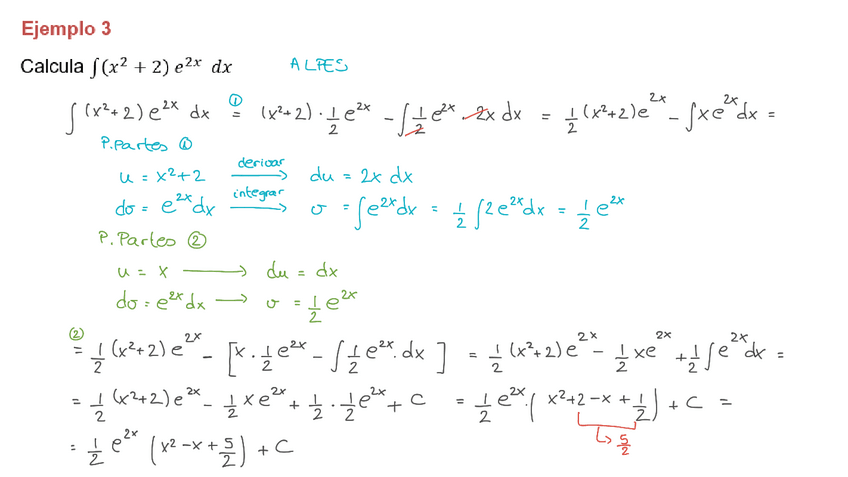 Ejemplo 3
Calcula ∫(x² + 2) e²ˣ dx ALPES
∫ (x²+2) e²ˣ dx =① (x²+2) · 1/2 e²ˣ − ∫ 1/2 e²ˣ · 2x dx = 1/2 (x²+2) e²ˣ − ∫ x e²ˣ dx =
P. Partes ①
u = x²+2 derivar → du = 2x dx
dv = e²ˣ dx integrar → v = ∫ e²ˣ dx = 1/2 ∫ 2 e²ˣ dx = 1/2 e²ˣ
P. Partes ②
u = x → du = dx
dv = e²ˣ dx → v = 1/2 e²ˣ
②= 1/2 (x²+2) e²ˣ − [x · 1/2 e²ˣ − ∫ 1/2 e²ˣ · dx] = 1/2 (x²+2) e²ˣ − 1/2 x e²ˣ + 1/2 ∫ e²ˣ dx =
= 1/2 (x²+2) e²ˣ − 1/2 x e²ˣ + 1/2 · 1/2 e²ˣ + C = 1/2 e²ˣ · (x²+2−x+1/2) + C =
↳ 5/2
= 1/2 e²ˣ (x²−x+5/2) + C